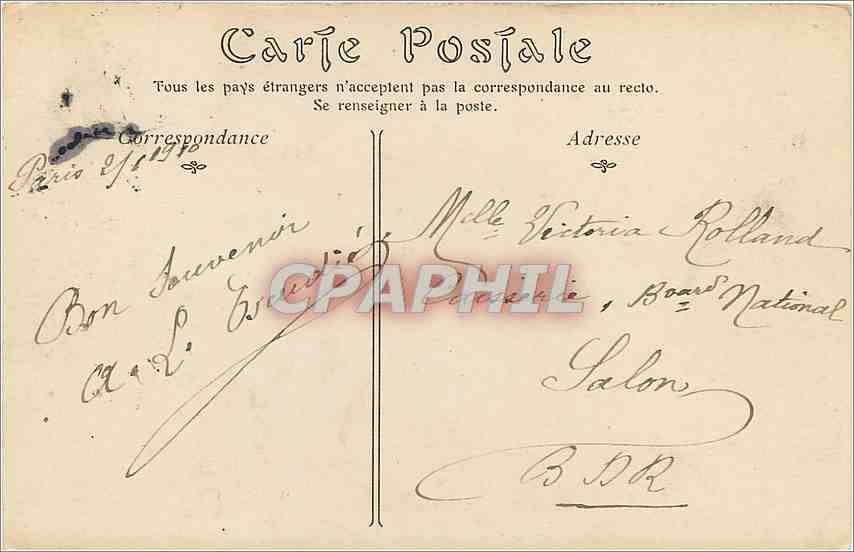 Carte Postale
Tous les pays étrangers n'acceptent pas la correspondance au recto.
Se renseigner à la poste.
Correspondance
Paris 2/1 1910
Bon Souvenir
A. L.
Adresse
Melle Victoria Rolland
Brasserie, Board National
Salon
BDR
CPAPHIL